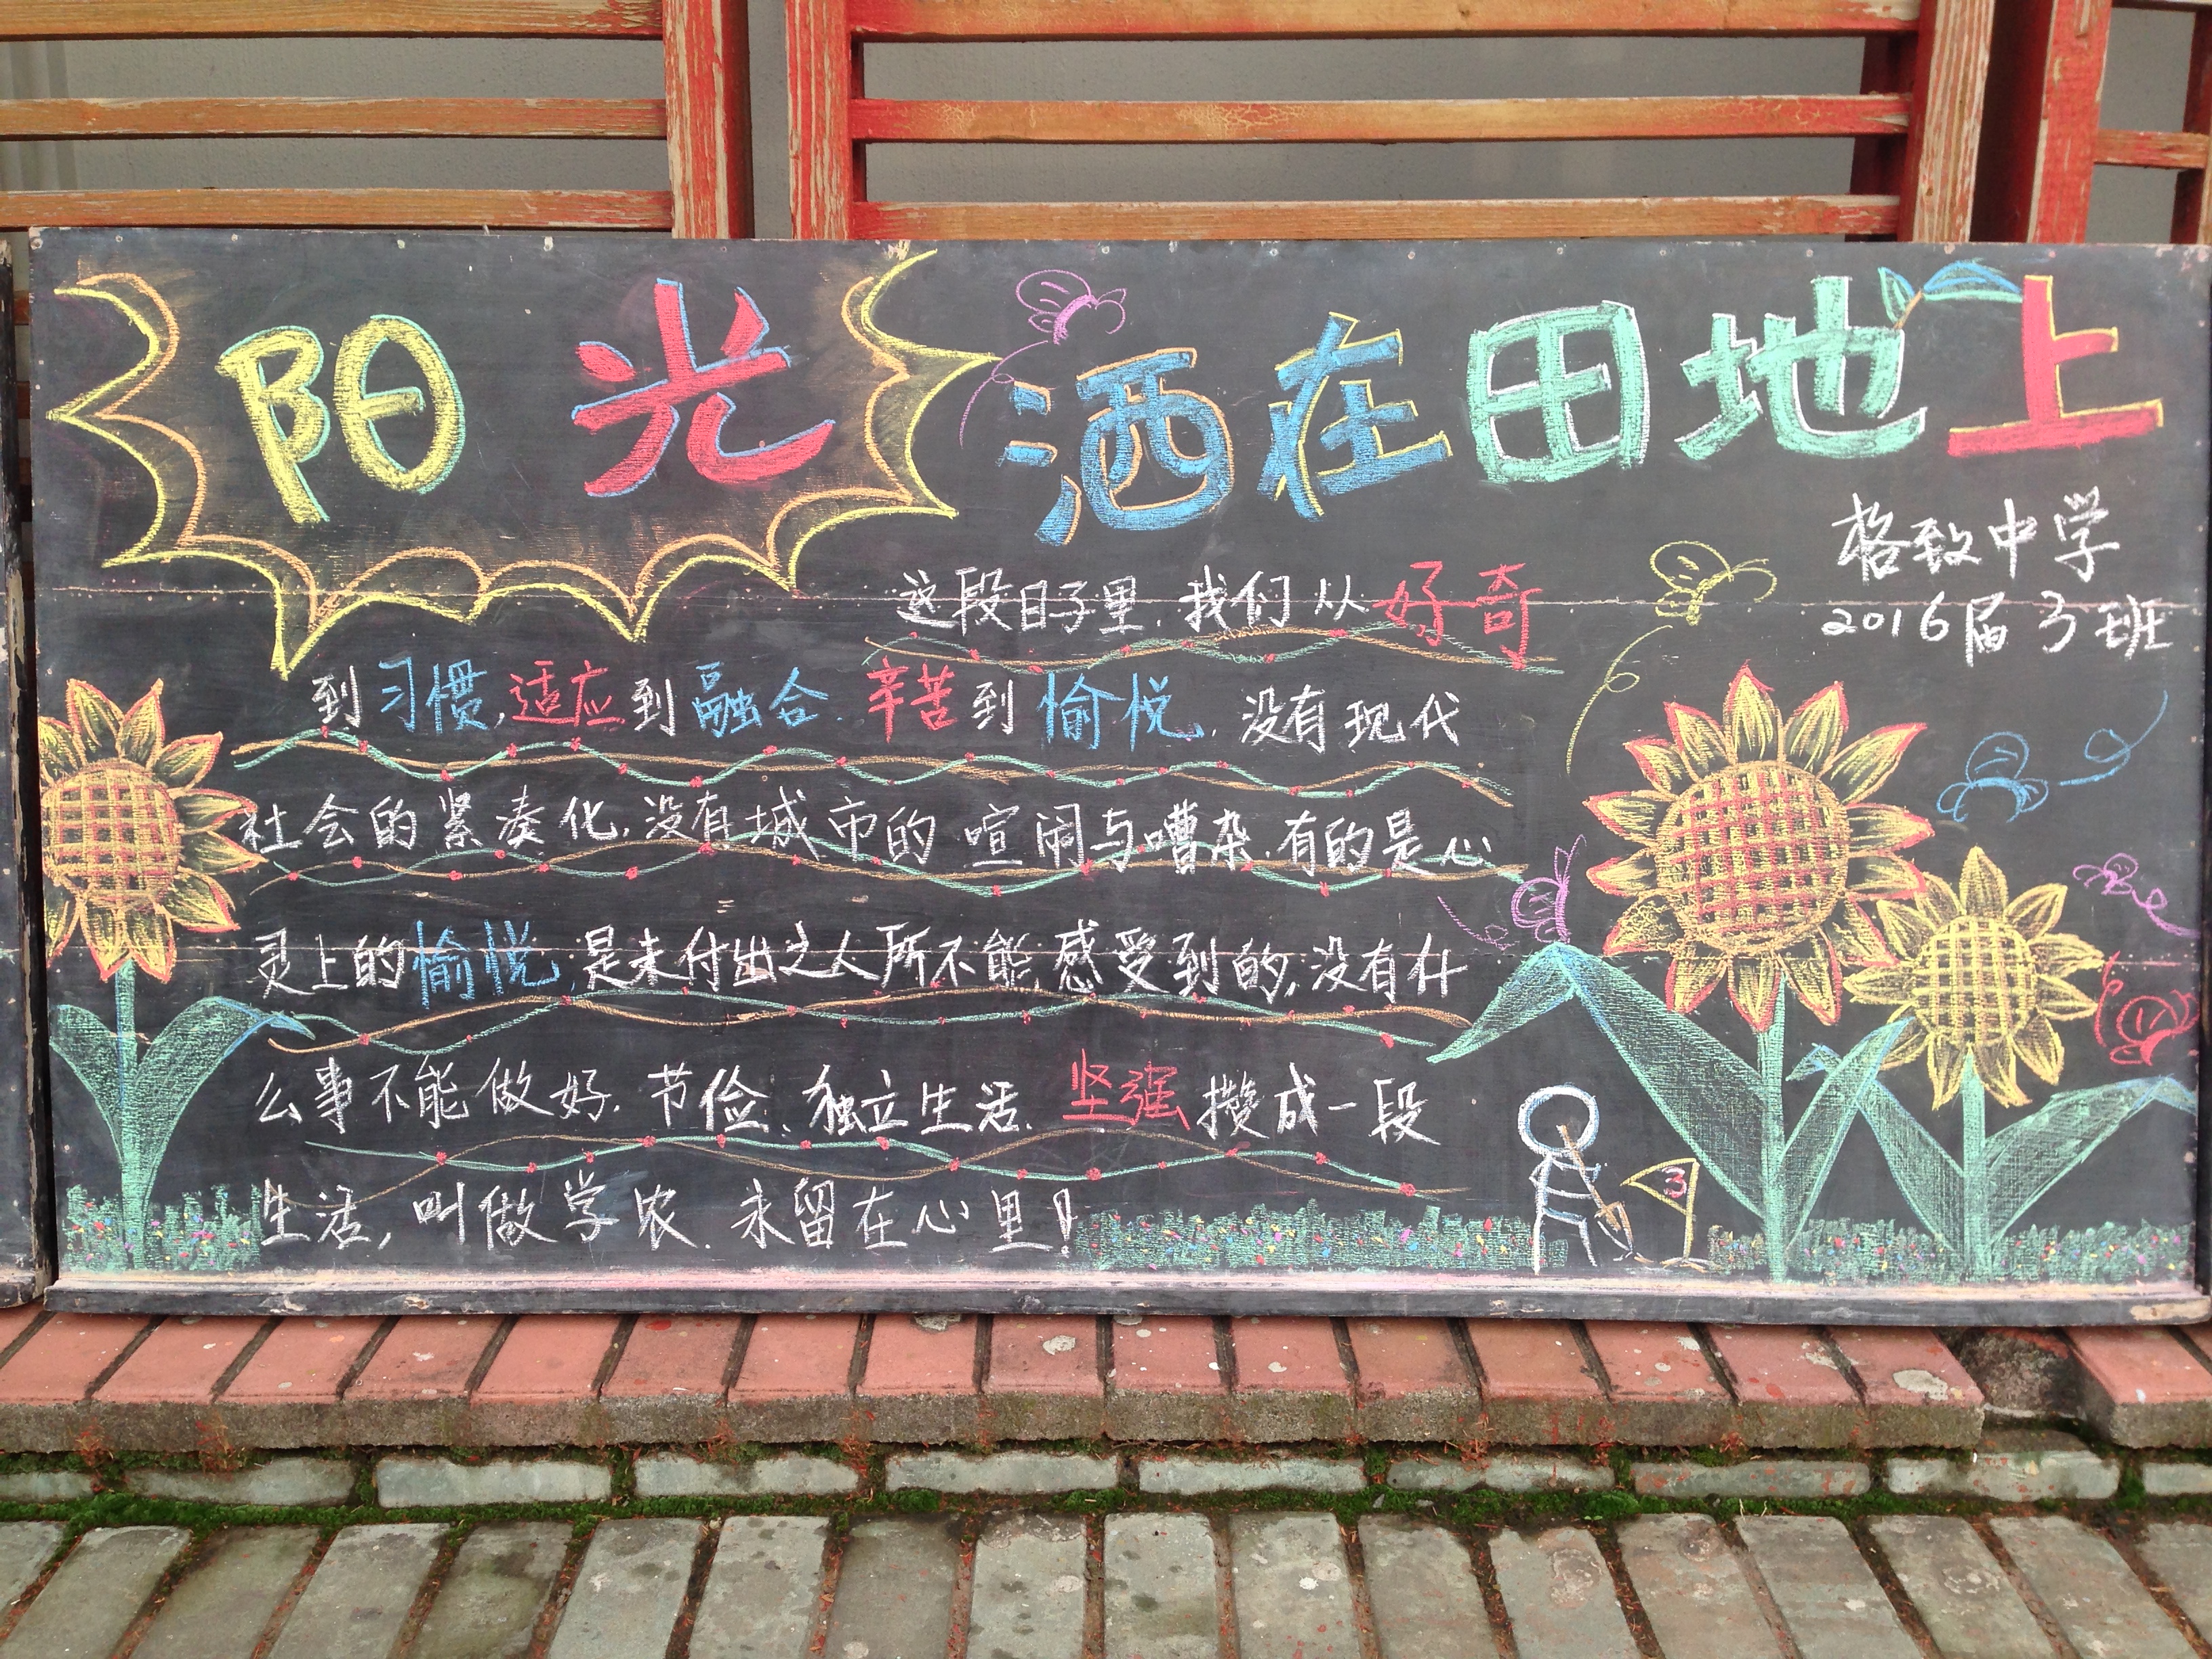 阳光洒在田地上
格致中学
2016届3班
这段日子里,我们从好奇
到习惯,适应到融合.辛苦到愉悦.没有现代
社会的紧凑化,没有城市的喧闹与嘈杂.有的是心
灵上的愉悦,是未付出之人所不能感受到的,没有什
么事不能做好.节俭、独立生活、坚强攒成一段
生活,叫做学农.永留在心里!
3